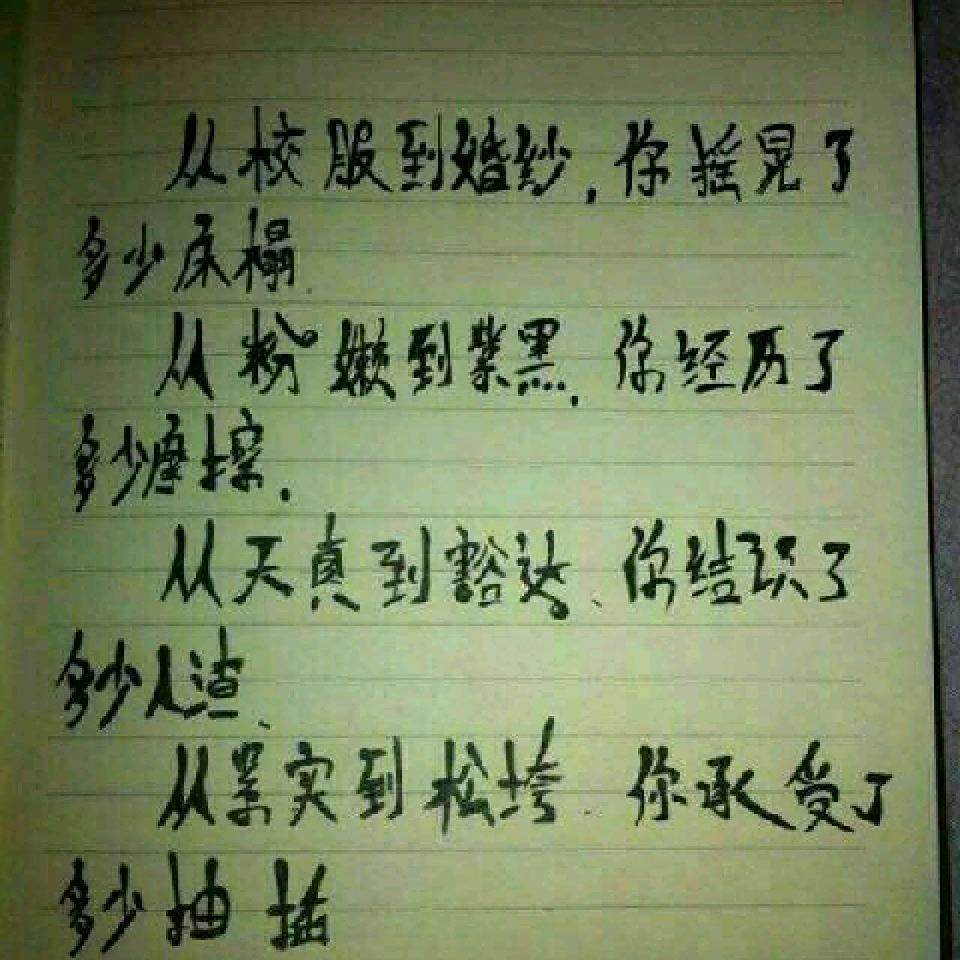 从校服到婚纱,你摇晃了
多少床榻.
从粉嫩到紫黑.你经历了
多少摩擦.
从天真到豁达、你结识了
多少人渣、
从紧实到松垮.你承受了
多少抽插